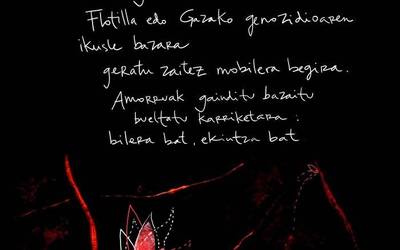 Flotilla edo Gazako genozidioaren
ikusle bazara
geratu zaitez mobilera begira.
Amorruak gainditu bazaitu
bueltatu karriketara:
bilera bat, ekintza bat